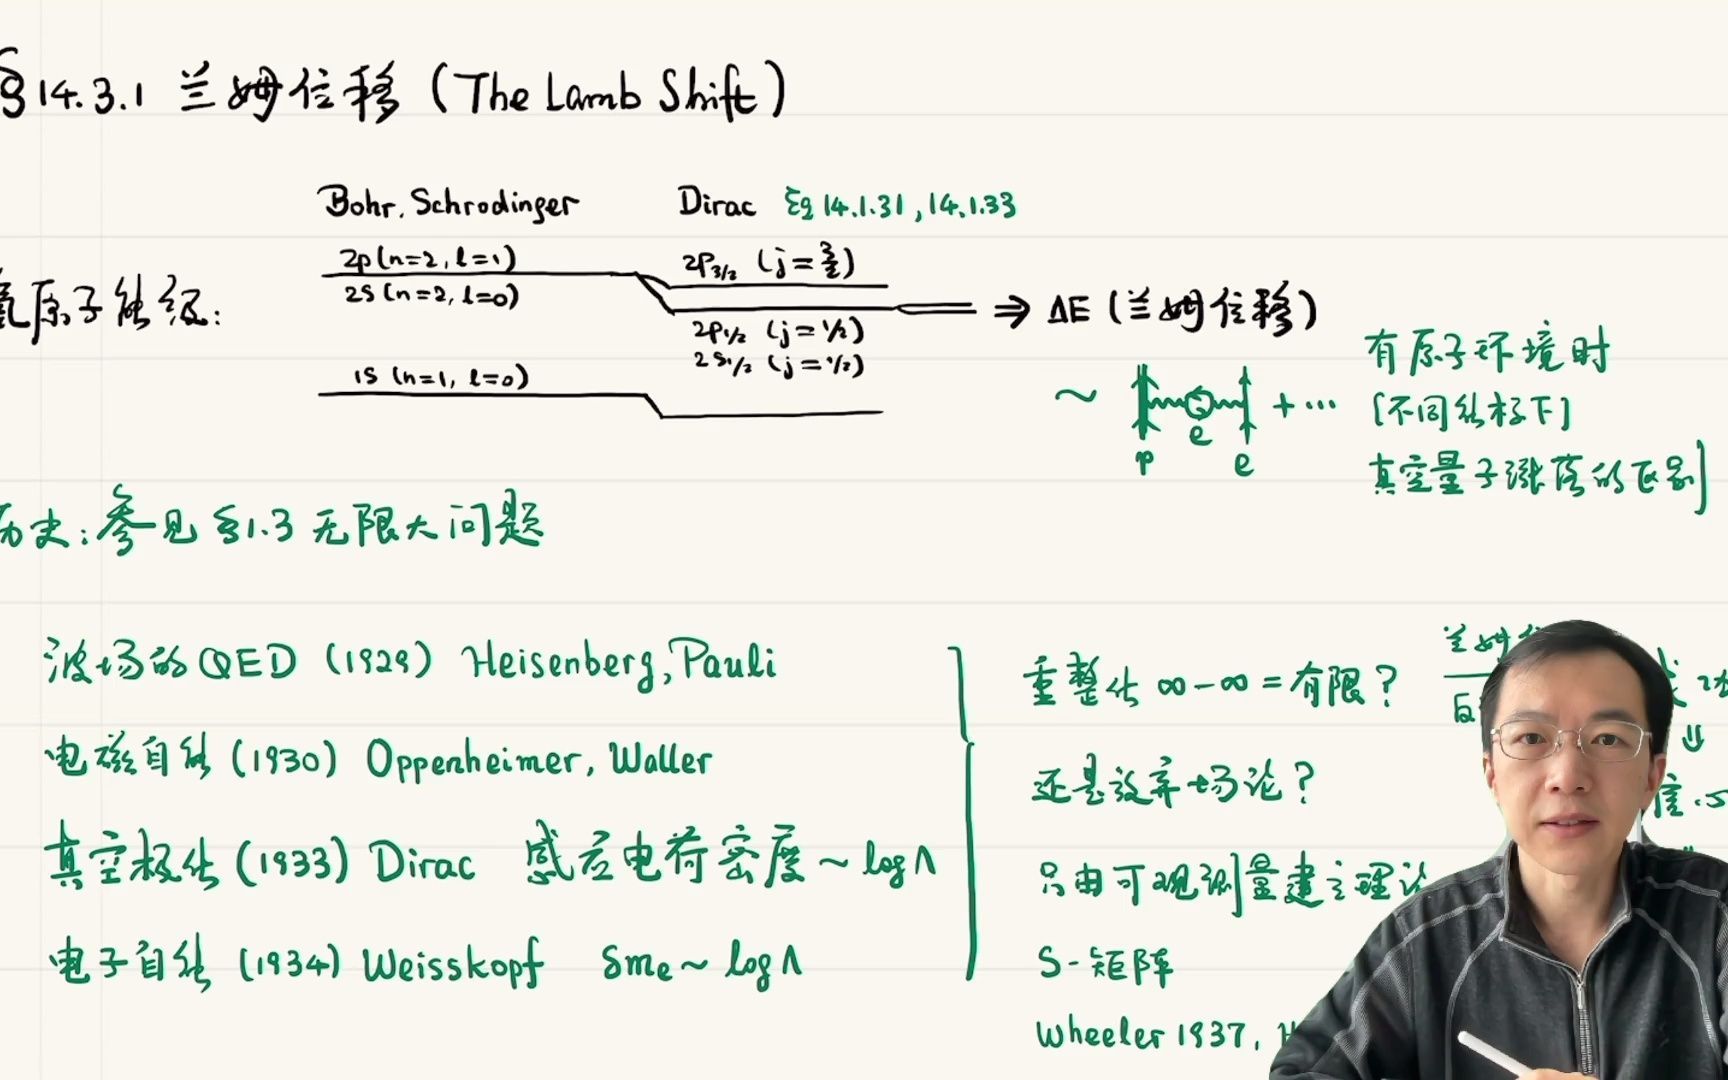 §14.3.1 兰姆位移 (The Lamb Shift)
Bohr, Schrodinger Dirac Eq 14.1.31, 14.1.33
氢原子能级:
2p (n=2, l=1)
2s (n=2, l=0)
1s (n=1, l=0)
2P3/2 (j=3/2)
2P1/2 (j=1/2)
2S1/2 (j=1/2)
⇒ ΔE (兰姆位移)
~ p e e + ...
有原子环境时
[不同能标下]
真空量子涨落的区别]
历史: 参见 §1.3 无限大问题
波场的QED (1929) Heisenberg, Pauli
电磁自能 (1930) Oppenheimer, Waller
真空极化 (1933) Dirac 感应电荷密度 ~ log Λ
电子自能 (1934) Weisskopf δme ~ log Λ
重整化 ∞-∞ = 有限?
还是放弃场论?
只由可观测量建立理论
S-矩阵
Wheeler 1937,
兰姆
⇓